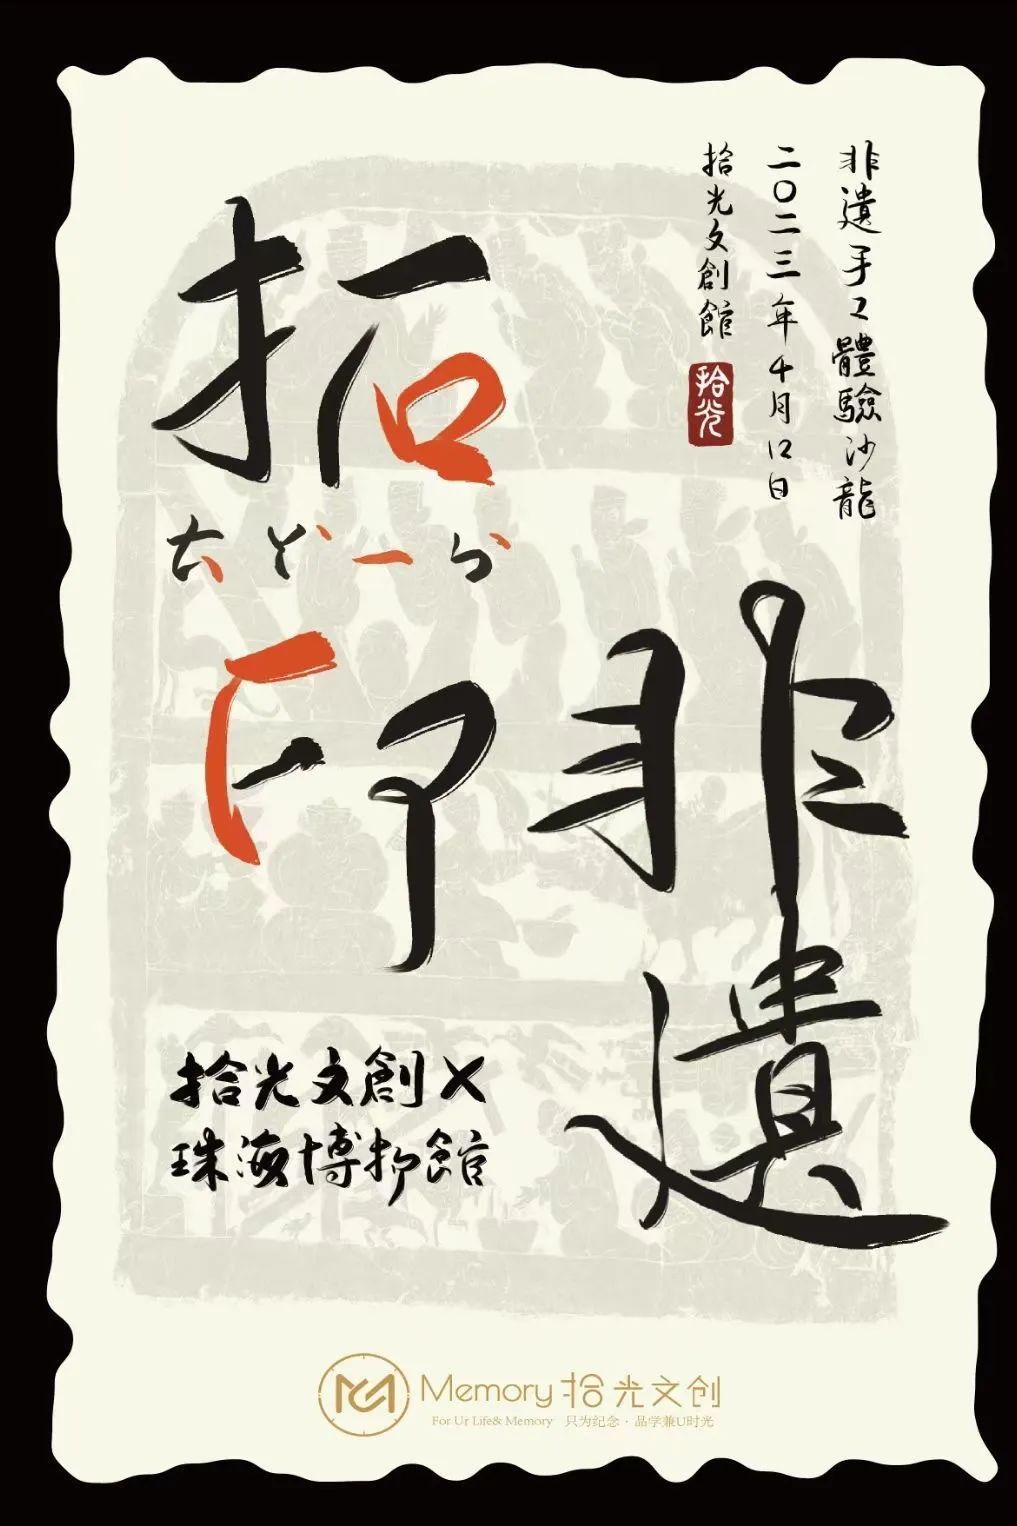 非遺手工體驗沙龍
二〇二三年4月12日
拾光文創館
拾光
拓
ㄊㄚˋㄧㄣˋ
印
非遺
拾光文創×
珠海博物館
Memory 拾光文创
For Ur Life& Memory 只为纪念·品学兼U时光